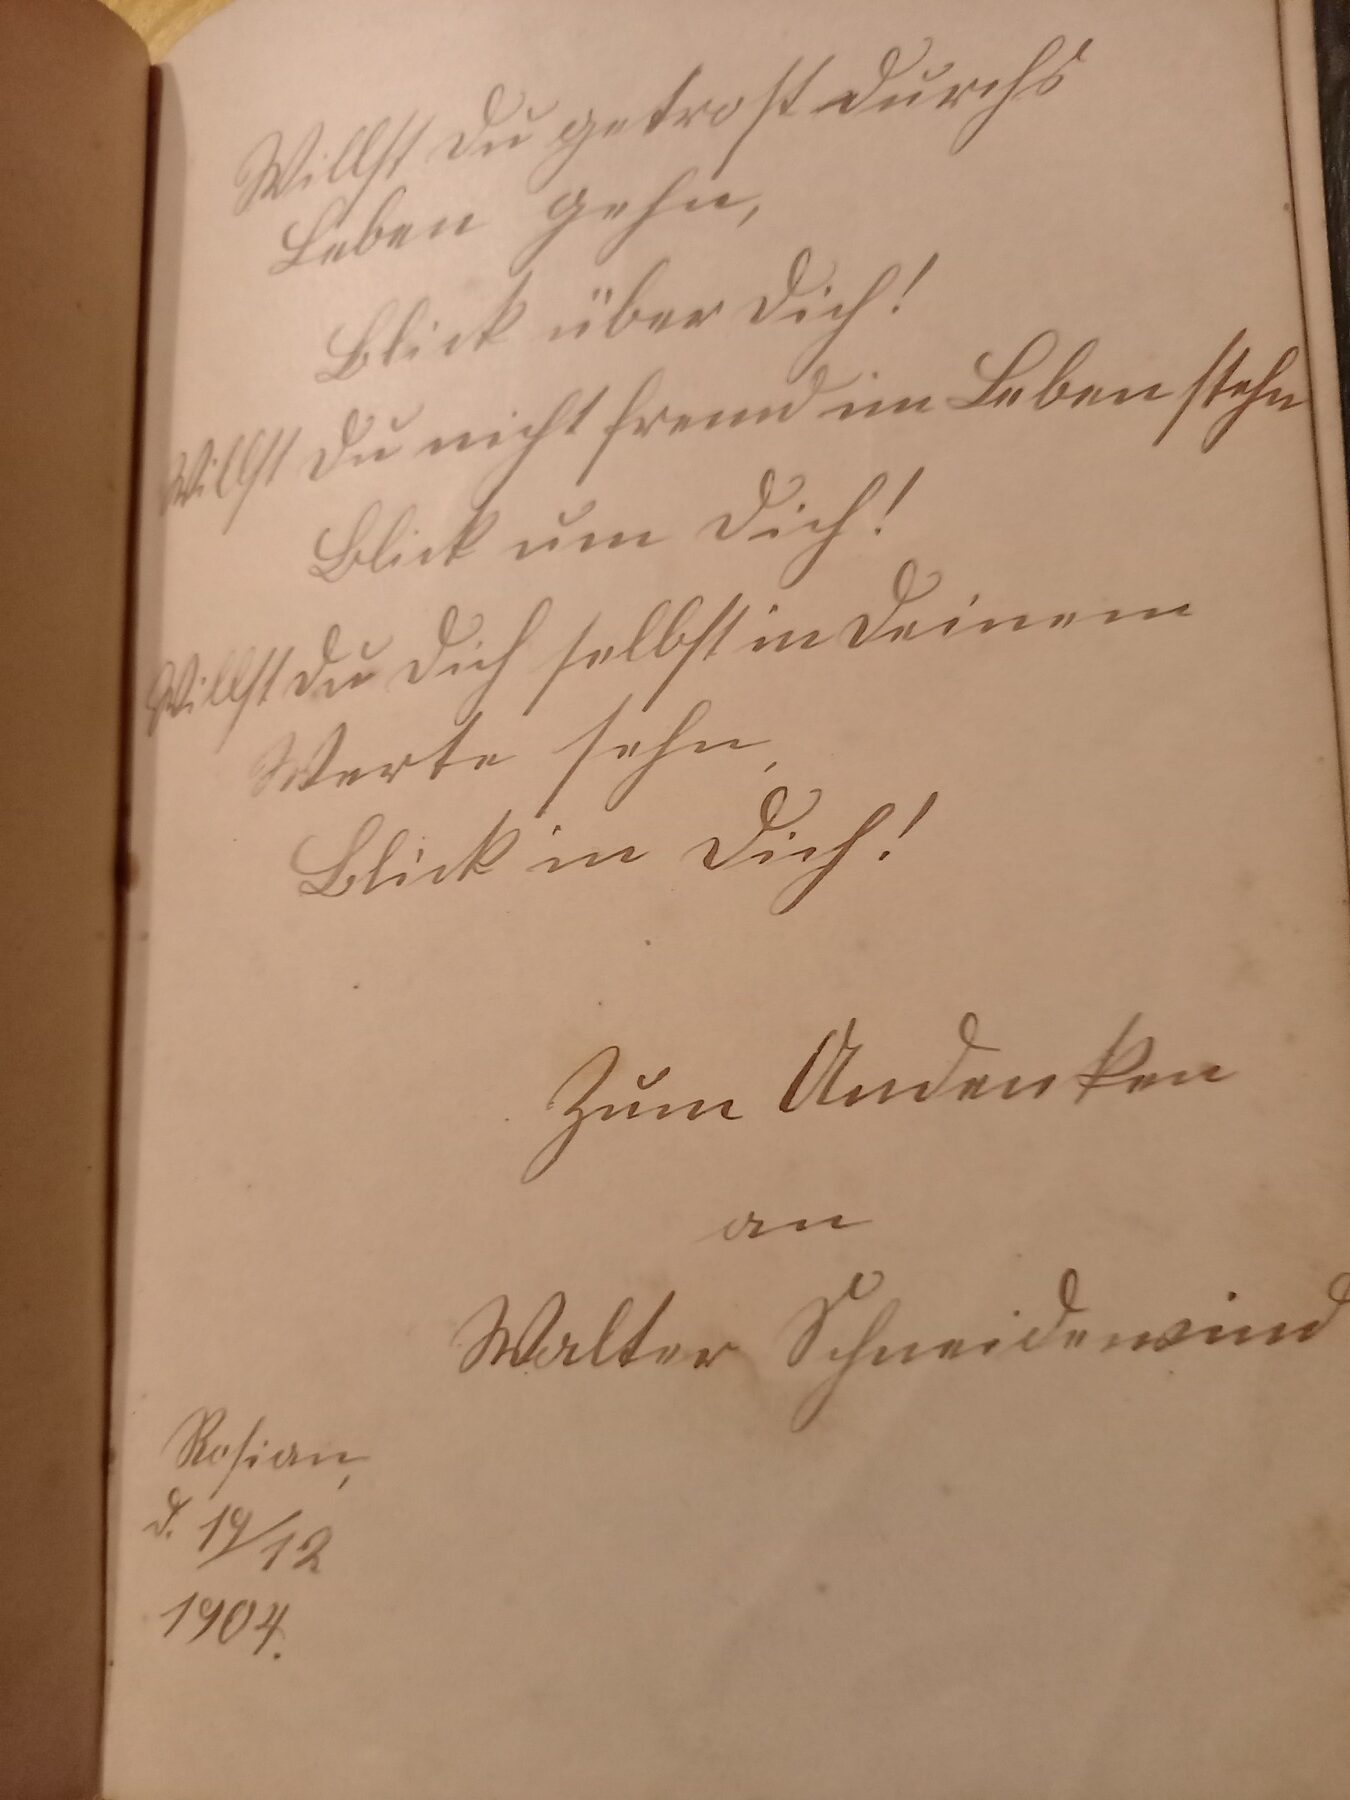 Willst Du getrost durchs
Leben gehn,
Blick über Dich!
Willst Du nicht fremd im Leben stehn
Blick um Dich!
Willst Du Dich selbst in Deinem
Werte sehn,
Blick in Dich!
Zum Andenken
an
Walter Schneidewind
Rosian,
d. 19/12
1904.